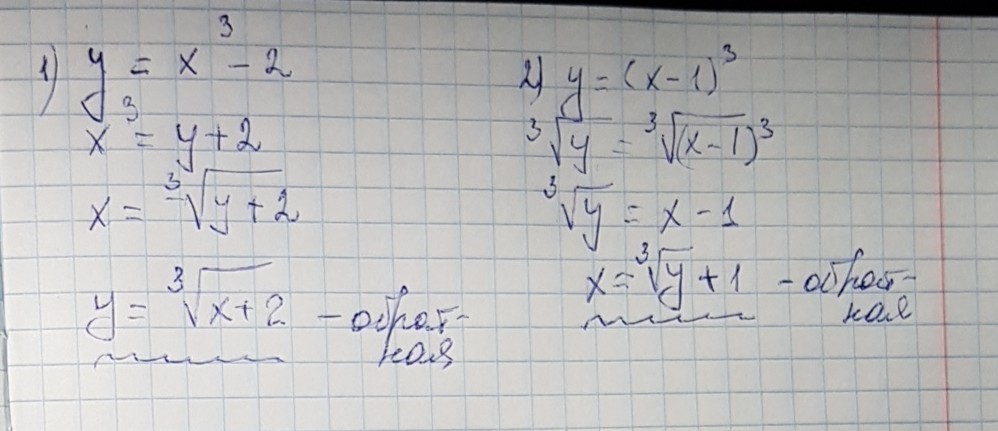 1) y = x³ - 2
x³ = y + 2
x = ³√(y + 2)
y = ³√(x + 2) - обрат-
ная
2) y = (x - 1)³
³√y = ³√(x - 1)³
³√y = x - 1
x = ³√y + 1 - обрат-
ная